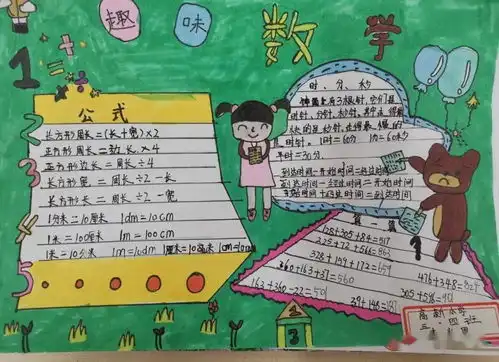 趣味
数学
1
2
3
4
5
公式
长方形周长=(长+宽)×2
正方形周长=边长×4
正方形边长=周长÷4
长方形宽=周长÷2-长
长方形长=周长÷2-宽
1分米=10厘米 1dm=10cm
1米=100厘米 1m=100cm
1米=10分米 1m=10dm 1厘米=10毫米 1cm=10mm
时、分、秒
钟面上有3根针,它们是
时针,分针,秒针,其中走得最
快的是秒针,走得最慢的
是时针。1时=60分 1分=60秒
半时=30分。
到达时间-开始时间=经过时间
到达时间-经过时间=开始时间
开始时间+经过时间=到达时间
128+305+84=517
325+72+566=963
328+159+172=659
360+163+37=560
163+360-22=501
39+148=187
476+348=824